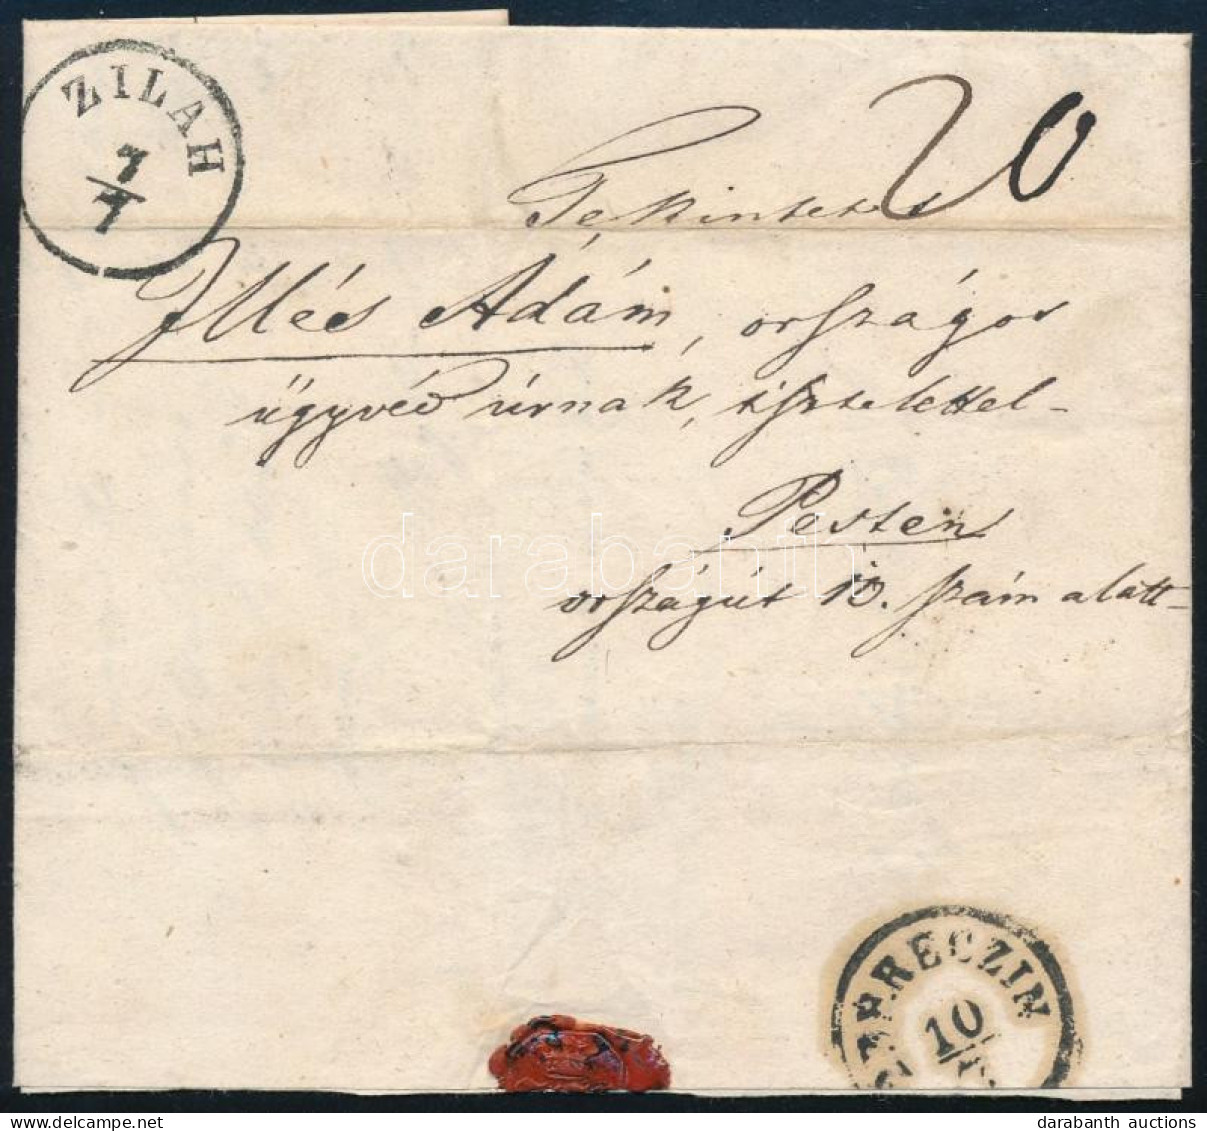 ZILAH
7/7
20
Tekintetes
Illés Ádám, országos
ügyvéd úrnak, tisztelettel-
Pesten
országút 10. szám alatt-
darabanth
DEBRECZIN
10/7
darabanth auctions